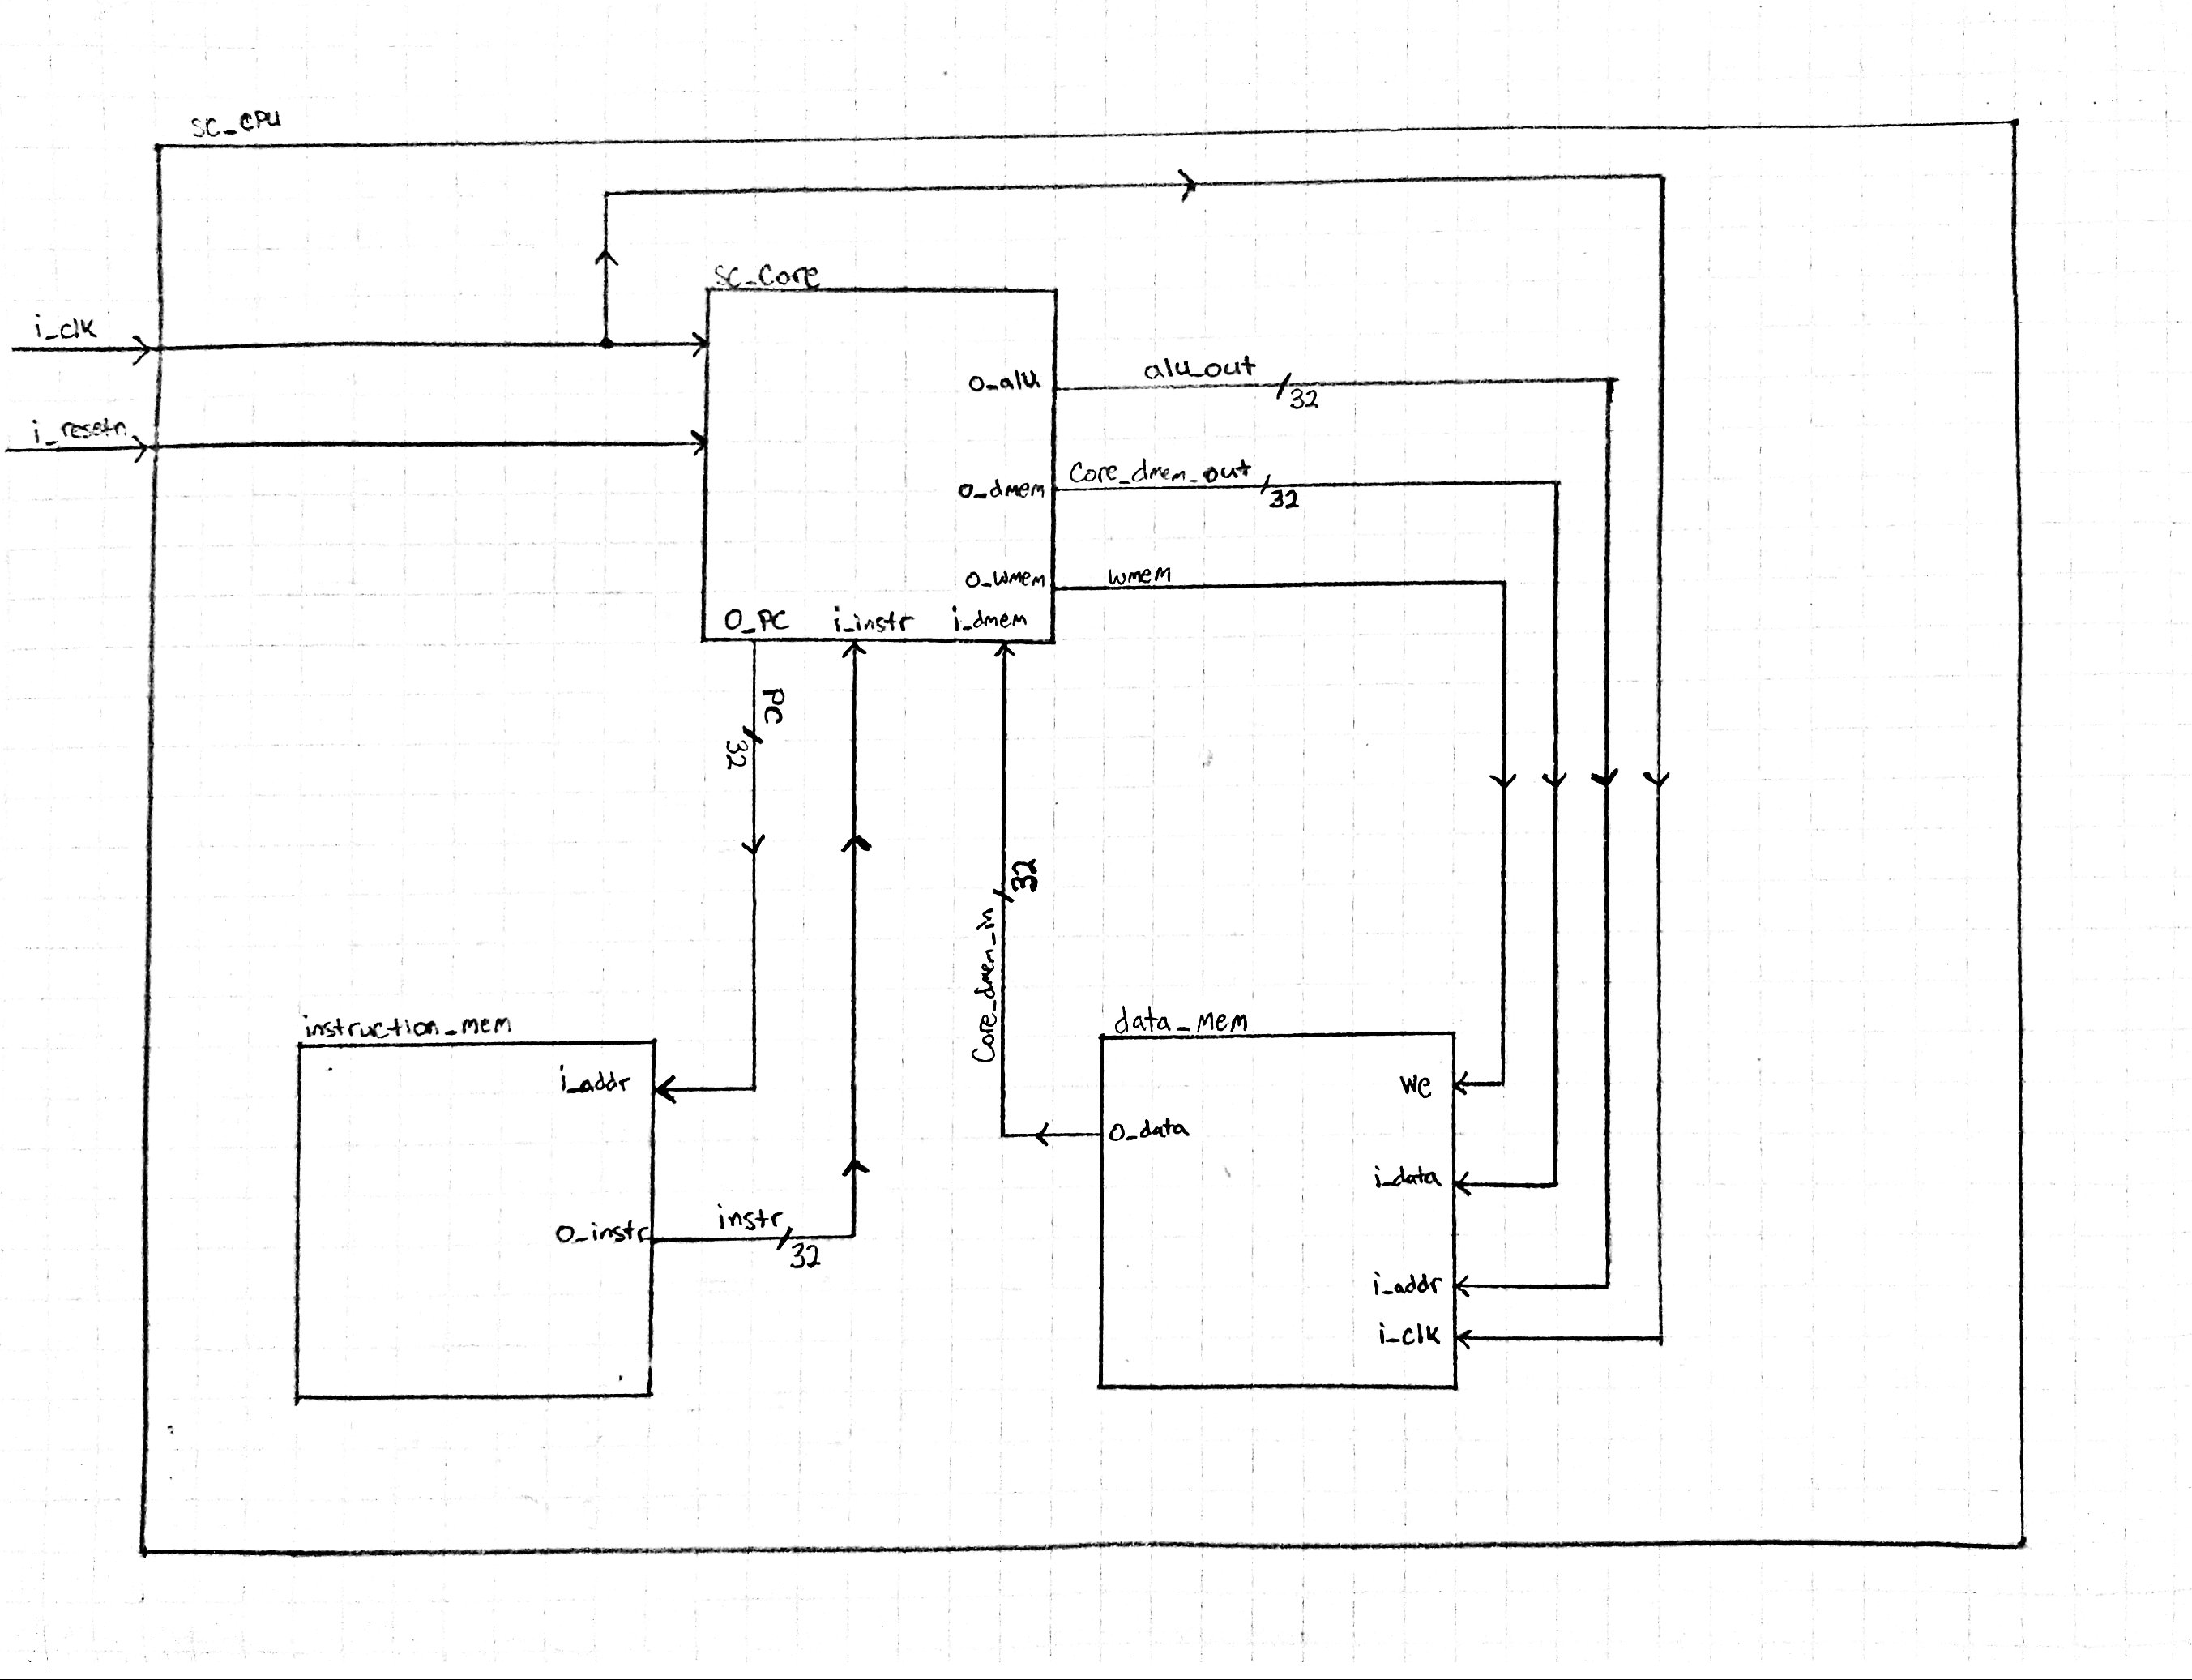 SC_CPU
SC_Core
i_clk
o_alu
alu_out
32
i_resetn
o_dmem
Core_dmem_out
32
o_wmem
wmem
O_PC
i_instr
i_dmem
PC
32
32
Core_dmem_in
instruction_mem
i_addr
o_instr
instr
32
data_mem
we
o_data
i_data
i_addr
i_clk